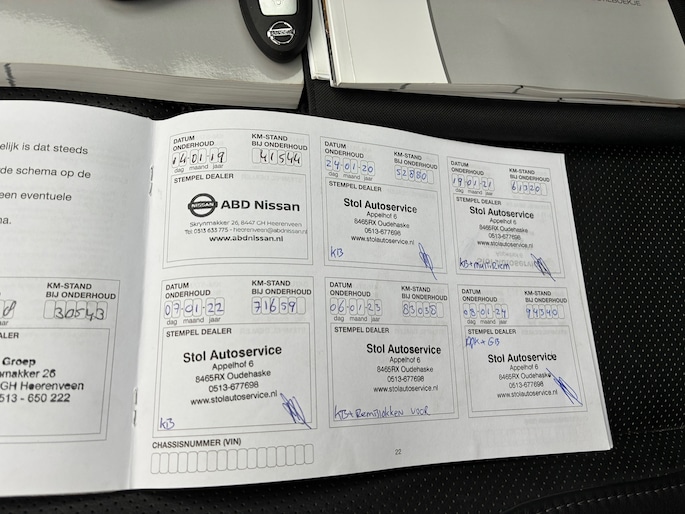 NISSAN
elijk is dat steeds
rde schema op de
een eventuele
na.
KM-STAND
BIJ ONDERHOUD
30543
Groep
makker 26
GH Heerenveen
513 - 650 222
DATUM
ONDERHOUD
KM-STAND
BIJ ONDERHOUD
14-01-19
41544
dag maand jaar
STEMPEL DEALER
NISSAN
ABD Nissan
Skrynmakker 26, 8447 GH Heerenveen
Tel 0513 633 775 - heerenveen@abdnissan.nl
www.abdnissan.nl
DATUM
ONDERHOUD
KM-STAND
BIJ ONDERHOUD
24-01-20
52880
dag maand jaar
STEMPEL DEALER
Stol Autoservice
Appelhof 6
8465RX Oudehaske
0513-677698
www.stolautoservice.nl
KB
DATUM
ONDERHOUD
KM-STAND
BIJ ONDERHOUD
19-01-21
61320
dag maand jaar
STEMPEL DEALER
Stol Autoservice
Appelhof 6
8465RX Oudehaske
0513-677698
www.stolautoservice.nl
KB+multiriem
DATUM
ONDERHOUD
KM-STAND
BIJ ONDERHOUD
07-01-22
71659
dag maand jaar
STEMPEL DEALER
Stol Autoservice
Appelhof 6
8465RX Oudehaske
0513-677698
www.stolautoservice.nl
KB
DATUM
ONDERHOUD
KM-STAND
BIJ ONDERHOUD
06-01-23
83038
dag maand jaar
STEMPEL DEALER
Stol Autoservice
Appelhof 6
8465RX Oudehaske
0513-677698
www.stolautoservice.nl
KB+Remblokken VOOR
DATUM
ONDERHOUD
KM-STAND
BIJ ONDERHOUD
08-01-24
94340
dag maand jaar
STEMPEL DEALER
APK+GB
Stol Autoservice
Appelhof 6
8465RX Oudehaske
0513-677698
www.stolautoservice.nl
CHASSISNUMMER (VIN)
22